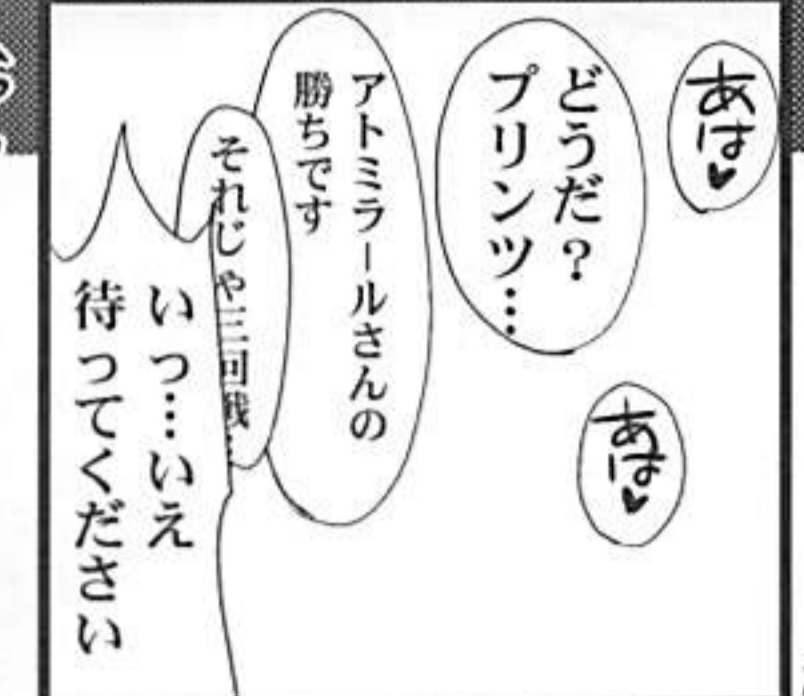 あは♥
どうだ?
プリンツ…
あは♥
アトミラールさんの
勝ちです
それじゃ三回戦…
いっ…いえ
待ってください